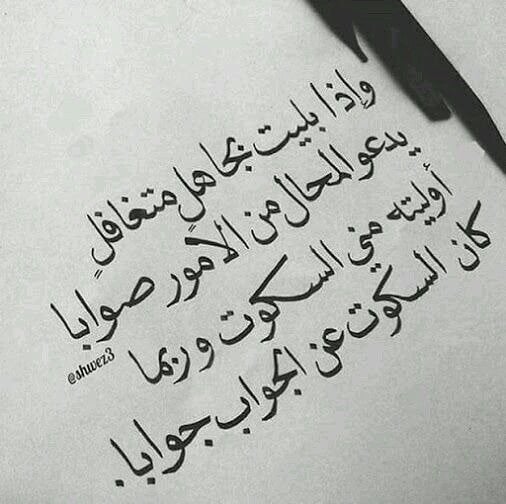 وإذا بليت بجاهلٍ متغافلٍ
يدعو المحال من الأمور صوابا
أوليته مني السكوت وربما
كان السكوت عن الجواب جوابا.
@shwez3